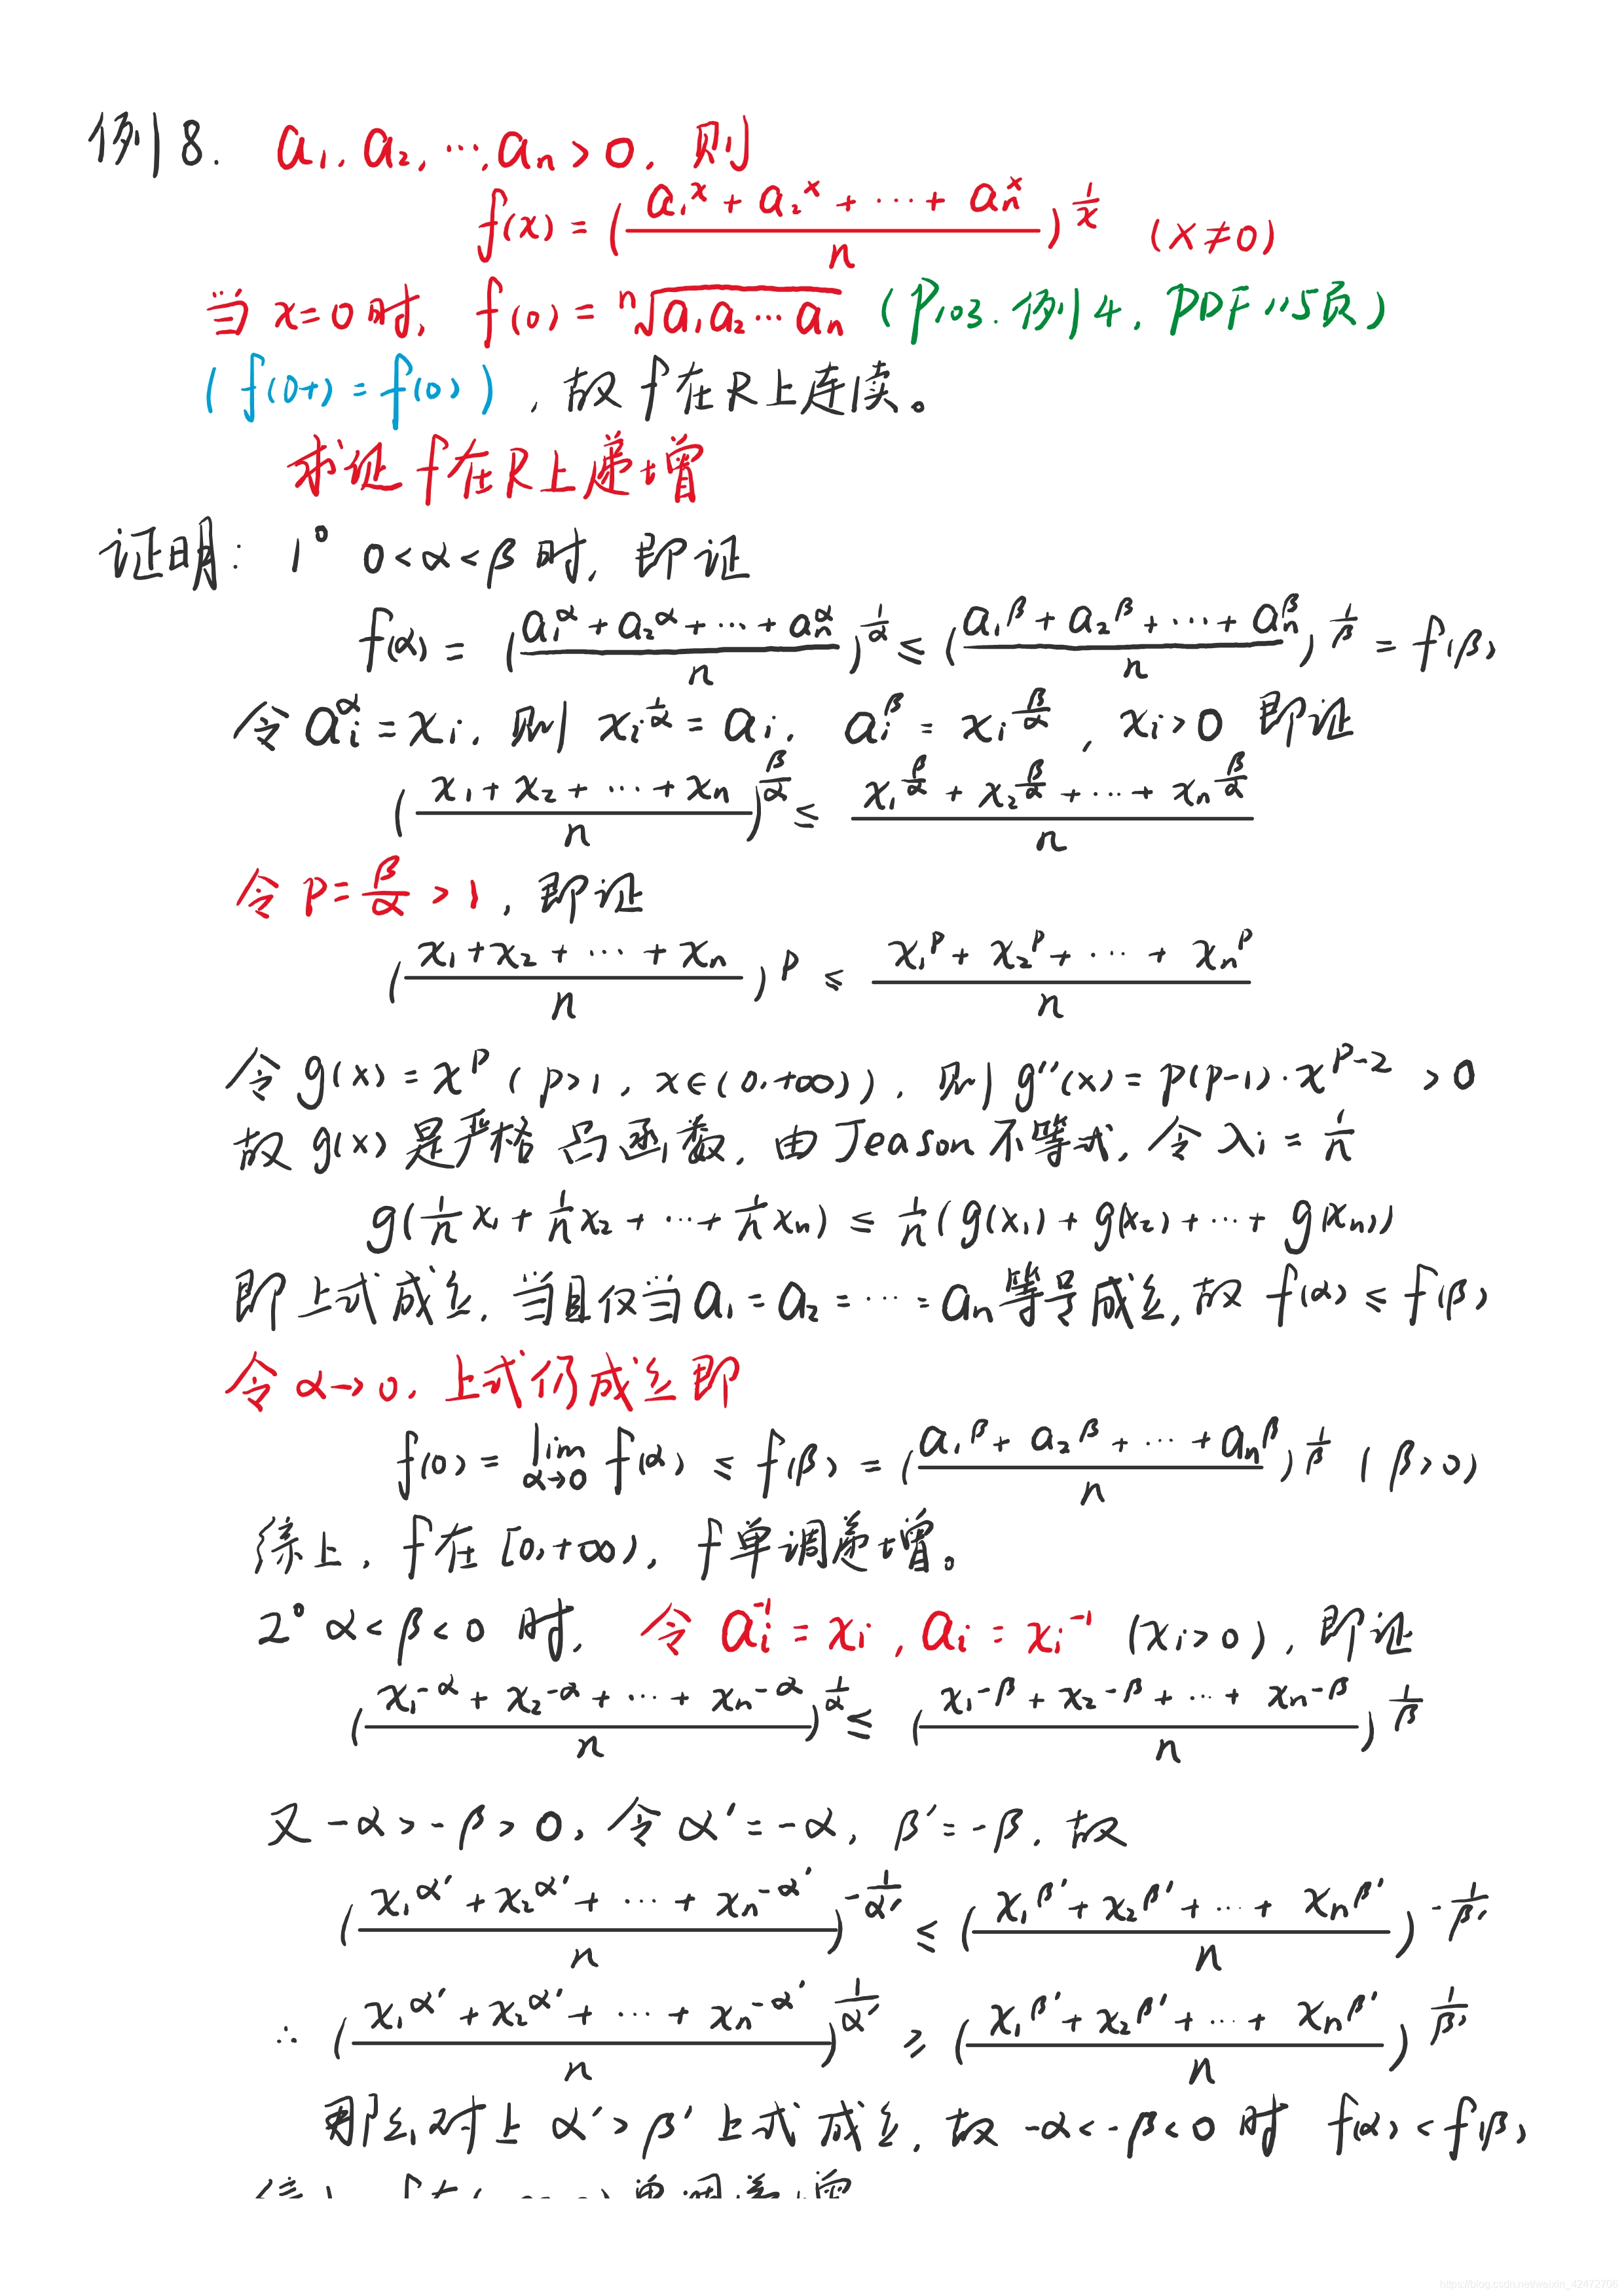 例8. a₁, a₂, …, aₙ > 0, 则
f(x) = ((a₁ˣ + a₂ˣ + … + aₙˣ)/n)^(1/x) (x≠0)
当 x=0 时, f(0) = ⁿ√(a₁a₂…aₙ) (P103. 例4, PDF 115页)
(f(0+) = f(0)), 故 f 在 R 上连续。
求证 f 在 R 上递增
证明: 1° 0<α<β 时, 即证
f(α) = ((a₁^α + a₂^α + … + aₙ^α)/n)^(1/α) ≤ ((a₁^β + a₂^β + … + aₙ^β)/n)^(1/β) = f(β)
令 aᵢ^α = xᵢ, 则 xᵢ^(1/α) = aᵢ, aᵢ^β = xᵢ^(β/α), xᵢ>0 即证
((x₁ + x₂ + … + xₙ)/n)^(β/α) ≤ (x₁^(β/α) + x₂^(β/α) + … + xₙ^(β/α))/n
令 p = β/α > 1, 即证
((x₁ + x₂ + … + xₙ)/n)^p ≤ (x₁^p + x₂^p + … + xₙ^p)/n
令 g(x) = x^p (p>1, x∈(0,+∞)), 则 g''(x) = p(p-1)·x^(p-2) > 0
故 g(x) 是严格凸函数, 由 Jeason 不等式, 令 λᵢ = 1/n
g(1/n x₁ + 1/n x₂ + … + 1/n xₙ) ≤ 1/n (g(x₁) + g(x₂) + … + g(xₙ))
即上式成立, 当且仅当 a₁ = a₂ = … = aₙ 等号成立, 故 f(α) ≤ f(β)
令 α→0, 上式仍成立即
f(0) = lim_(α→0) f(α) ≤ f(β) = ((a₁^β + a₂^β + … + aₙ^β)/n)^(1/β) (β>0)
综上, f 在 [0,+∞), f 单调递增。
2° α<β<0 时, 令 aᵢ^-1 = xᵢ, aᵢ = xᵢ^-1 (xᵢ>0), 即证
((x₁^-α + x₂^-α + … + xₙ^-α)/n)^(1/α) ≤ ((x₁^-β + x₂^-β + … + xₙ^-β)/n)^(1/β)
又 -α>-β>0, 令 α'=-α, β'=-β, 故
((x₁^α' + x₂^α' + … + xₙ^-α')/n)^(-1/α') ≤ ((x₁^β' + x₂^β' + … + xₙ^β')/n)^(-1/β')
∴ ((x₁^α' + x₂^α' + … + xₙ^-α')/n)^(1/α') ≥ ((x₁^β' + x₂^β' + … + xₙ^β')/n)^(1/β')
α'>β' 上式成立, 故 -α<-β<0 时 f(α)<f(β)
https://blog.csdn.net/weixin_42472706